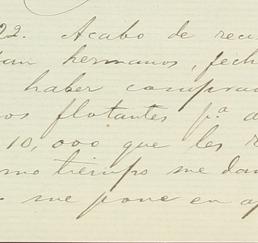 22. Acabo de reci
dan hermanos, fech
haber comprad
os flotantes p.ª d
10,000 que les r
mo tiempo me dan
me pone en ap